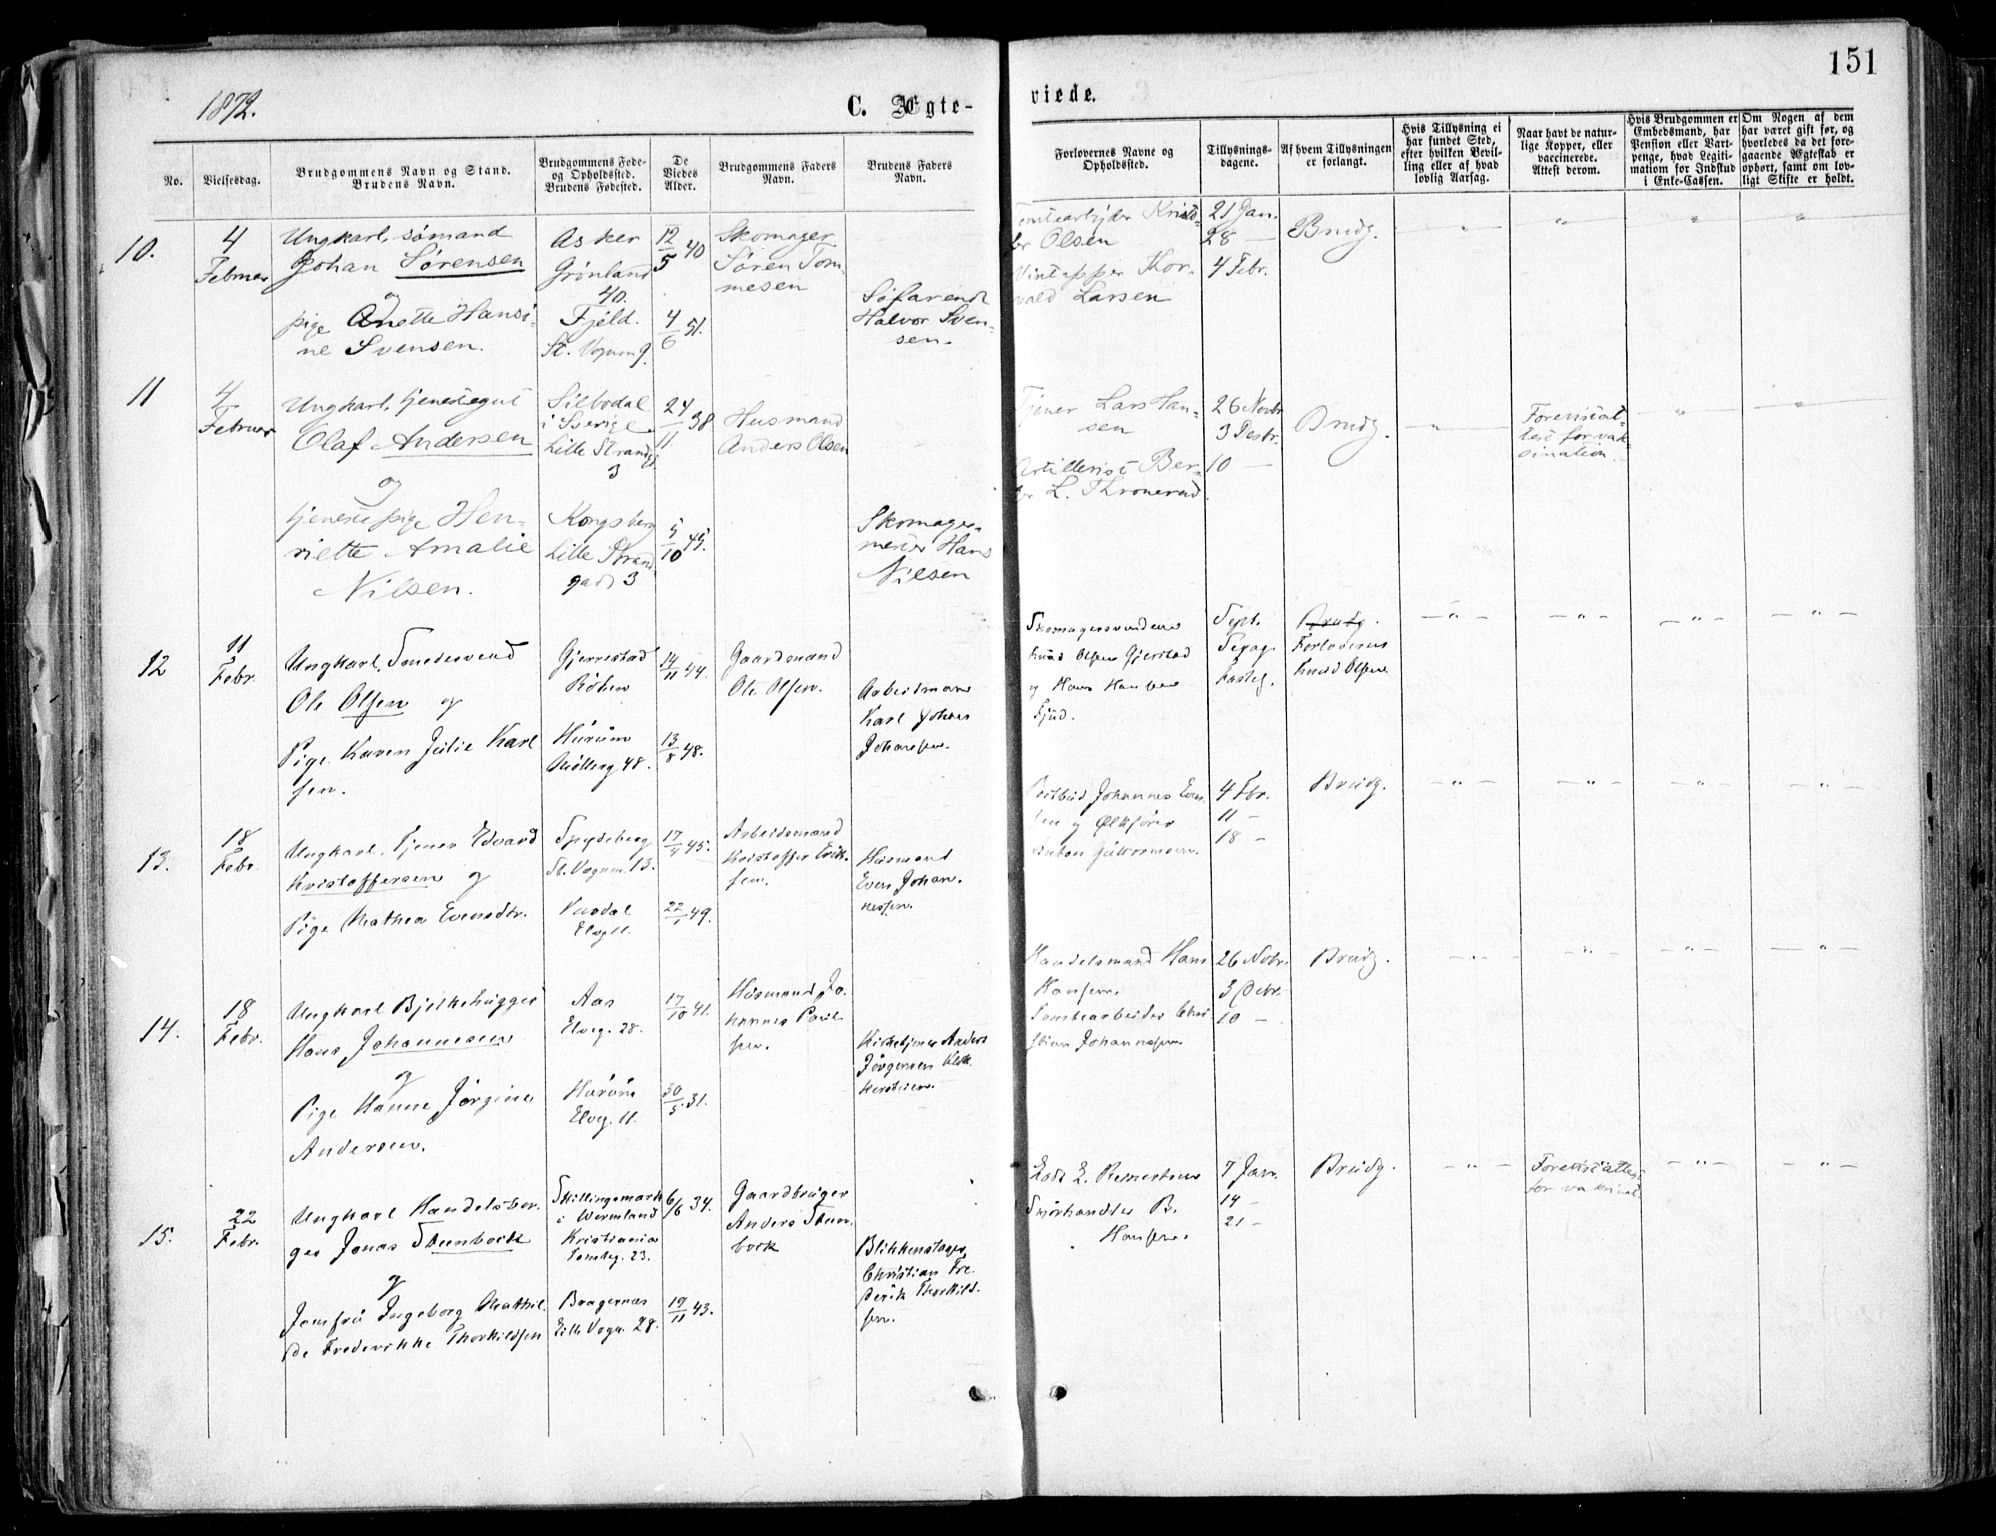 151
1872.
C. Ægte-
viede.
No.
Vielsesdag.
Brudgommens Navn og Stand.
Brudens Navn.
Brudgommens Føde-
og Opholdssted.
Brudens Fødested.
De
Viedes
Alder.
Brudgommens Faders
Navn.
Brudens Faders
Navn.
Forlovernes Navne og
Opholdssted.
Tillysnings-
dagene.
Af hvem Tillysningen
er forlangt.
Hvis Tillysning ei
har fundet Sted,
efter hvilken Bevil-
ling eller af hvad
lovlig Aarsag.
Naar havt de natur-
lige Kopper, eller
vaccinerede.
Attest derom.
Hvis Brudgommen er
Embedsmand, har
Pension eller Vart-
penge, hvad Legiti-
mation for Indskud
i Enke-Cassen.
Om Nogen af dem
har været gift før, og
hvorledes da det fore-
gaaende Ægteskab er
ophørt, samt om lov-
ligt Skifte er holdt.
10.
4
Februar
Ungkarl, sømand
Johan Sørensen
og
pige Anette Hansi-
ne Svensen.
Asker
Grønland
40.
Fjeld.
St. Vognmg.
12/5 40
4/6 51.
Skomager
Søren Tom-
mesen
Søfarende
Halvor Sven-
sen.
Tomtearbyder Krist-
Olsen
Vintapper Thor-
vald Larsen
21 Jan.
28 —
4 Febr.
Brudg.
11
4
Februar
Ungkarl, tjenestegut
Olaf Andersen
og
tjenestepige Hen-
riette Amalie
Nilsen.
Silbodal
i Sverige
Lille Strandg.
3
Kongsberg
Lille Strand
gade 3
24/11 38
5/10 45.
Husmand
Anders Olsen
Skomager-
mester Hans
Nilsen
Tjener Lars Han-
sen
Artillerist Ber-
L. Thronerud.
26 Novbr
3 Desbr.
10 —
Brudg.
Forevist at-
test for vak-
sination.
12
11
Febr.
Ungkarl, Smedesvend
Ole Olsen og
Pige Karen Julie Karl
sen.
Gjerrestad
Røken
Hurum
Møllerg 48.
14/11 44.
13/8 48.
Gaardmand
Ole Olsen.
Arbeidsmand
Karl Johan
Johansen.
Skomagersvendene
Knud Olsen Gjerstad
og Hans Hansen
Fjud.
Sept.
Sepag.
Fasteg.
Brudg.
Forloveren
Knud Olsen
13.
18
Febr.
Ungkarl, Tjener Edvard
Kristoffersen og
Pige Mathea Evensdtr.
Spydeberg
St. Vognm. 13.
Elvg 11.
17/4 45.
22/1 49.
Arbeidsmand
Kristoffer Erik-
sen.
Husmand
Even Johan-
nessen.
Postbud Johannes Even
sen og Ølkjører
Anton Guttormsen.
4 Fbr.
11 —
18 —
Brudg.
14.
18
Febr.
Ungkarl Bjelkehugger
Hans Johannesen
og
Pige Hanne Jørgine
Andersen.
Aas
Elveg. 28.
Hurum
Elveg. 11.
17/10 41.
30/5 31.
Husmand Jo-
hannes Paul-
sen.
Kirketjener Anders
Jørgensen
Handelsmand Hans
Hansen.
Tomtearbeider Chri
stian Johannessen.
26 Nvbr.
3 Debr.
10 —
Brudg.
15.
22
Febr.
Ungkarl Handelsbor-
ger Jonas Stenbock
og
Jomfru Ingeborg Mathil-
de Frederikke Thorkildsen
Skillingsmark
i Wermland
Kristiania
Tomteg. 23.
Bragernæs
Lille Vogn. 28.
6/6 34.
19/11 43.
Gaardbruger
Anders Sten-
bock
Blikkenslager
Christian Fre-
derik Thorkild-
sen.
Lods E.
Smørhandler B.
Hansen.
7 Jan.
14 —
21 —
Brudg.
Forevist attest
for vaksinat.